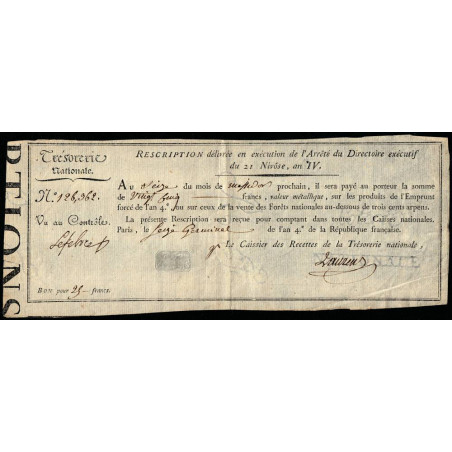 PTIONS
Trésorerie
Nationale.
N.° 126,362.
Vu au Contrôle.
Lefebvre
Bon pour 25 francs.
RESCRIPTION délivrée en exécution de l'Arrêté du Directoire exécutif
du 21 Nivôse, an IV.
Au seize du mois de messidor prochain, il sera payé au porteur la somme
de vingt cinq francs, valeur métallique, sur les produits de l'Emprunt
forcé de l'an 4.e ou sur ceux de la vente des Forêts nationales au-dessous de trois cents arpens.
La présente Rescription sera reçue pour comptant dans toutes les Caisses nationales.
Paris, le Seize Germinal de l'an 4.e de la République française.
Le Caissier des Recettes de la Trésorerie nationale,
Laurens